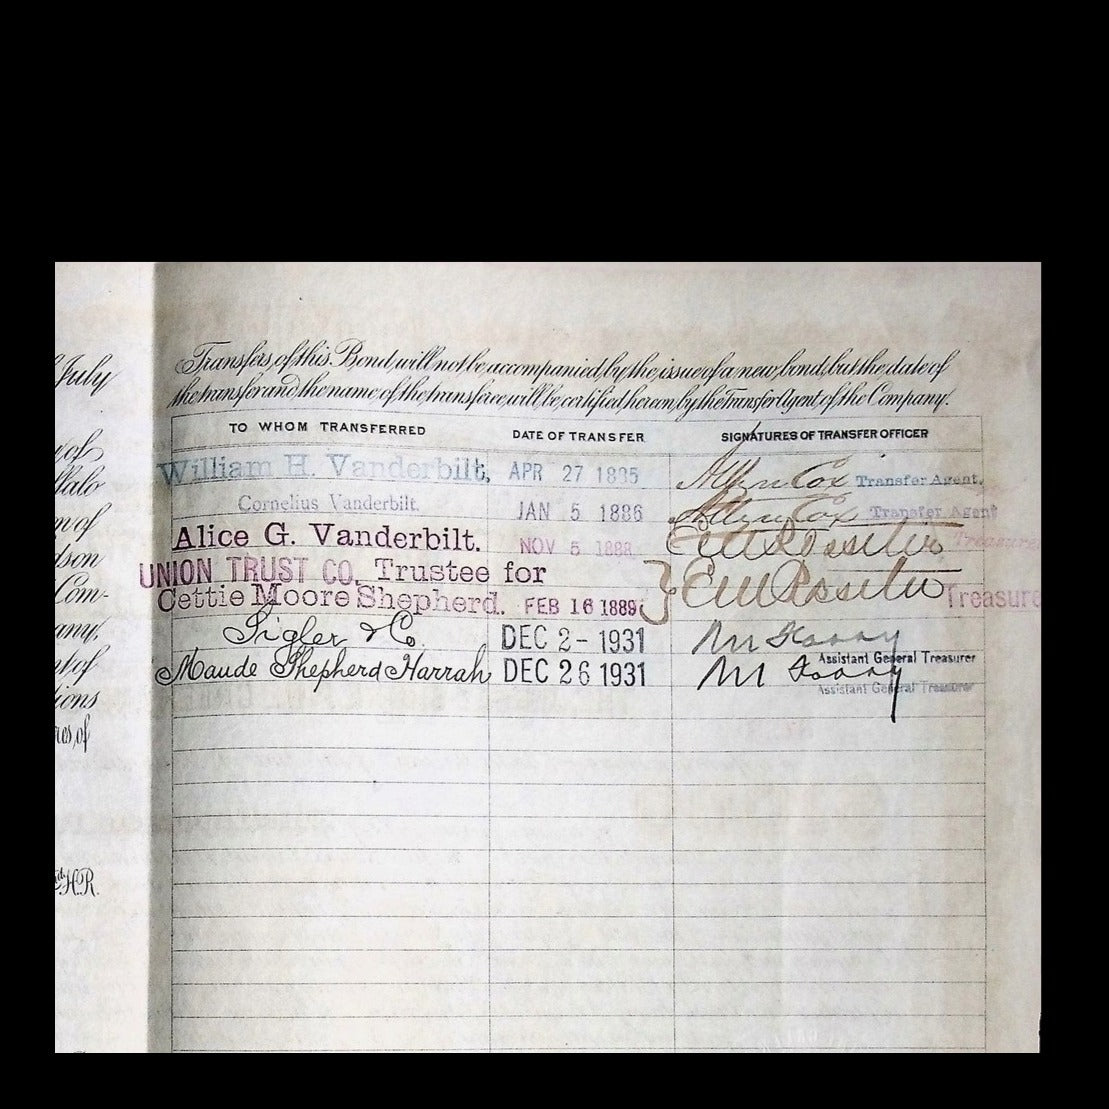 July
of
falo
n of
dson
Com-
any,
nt of
tions
res, of
d H.R.
Transfers of this Bond will not be accompanied by the issue of a new bond, but the date of
the transfer and the name of the transferee will be certified hereon by the Transfer Agent of the Company.
TO WHOM TRANSFERRED DATE OF TRANSFER SIGNATURES OF TRANSFER OFFICER
William H. Vanderbilt. APR 27 1885 Cox Transfer Agent.
Cornelius Vanderbilt. JAN 5 1886 Cox Transfer Agent
Alice G. Vanderbilt. NOV 5 1888 E W Rossiter Treasurer
UNION TRUST CO. Trustee for
Cettie Moore Shepherd. FEB 16 1889 E W Rossiter Treasure
Sigler & Co. DEC 2 - 1931
Assistant General Treasurer
Maude Shepherd Harrah DEC 26 1931
Assistant General Treasurer